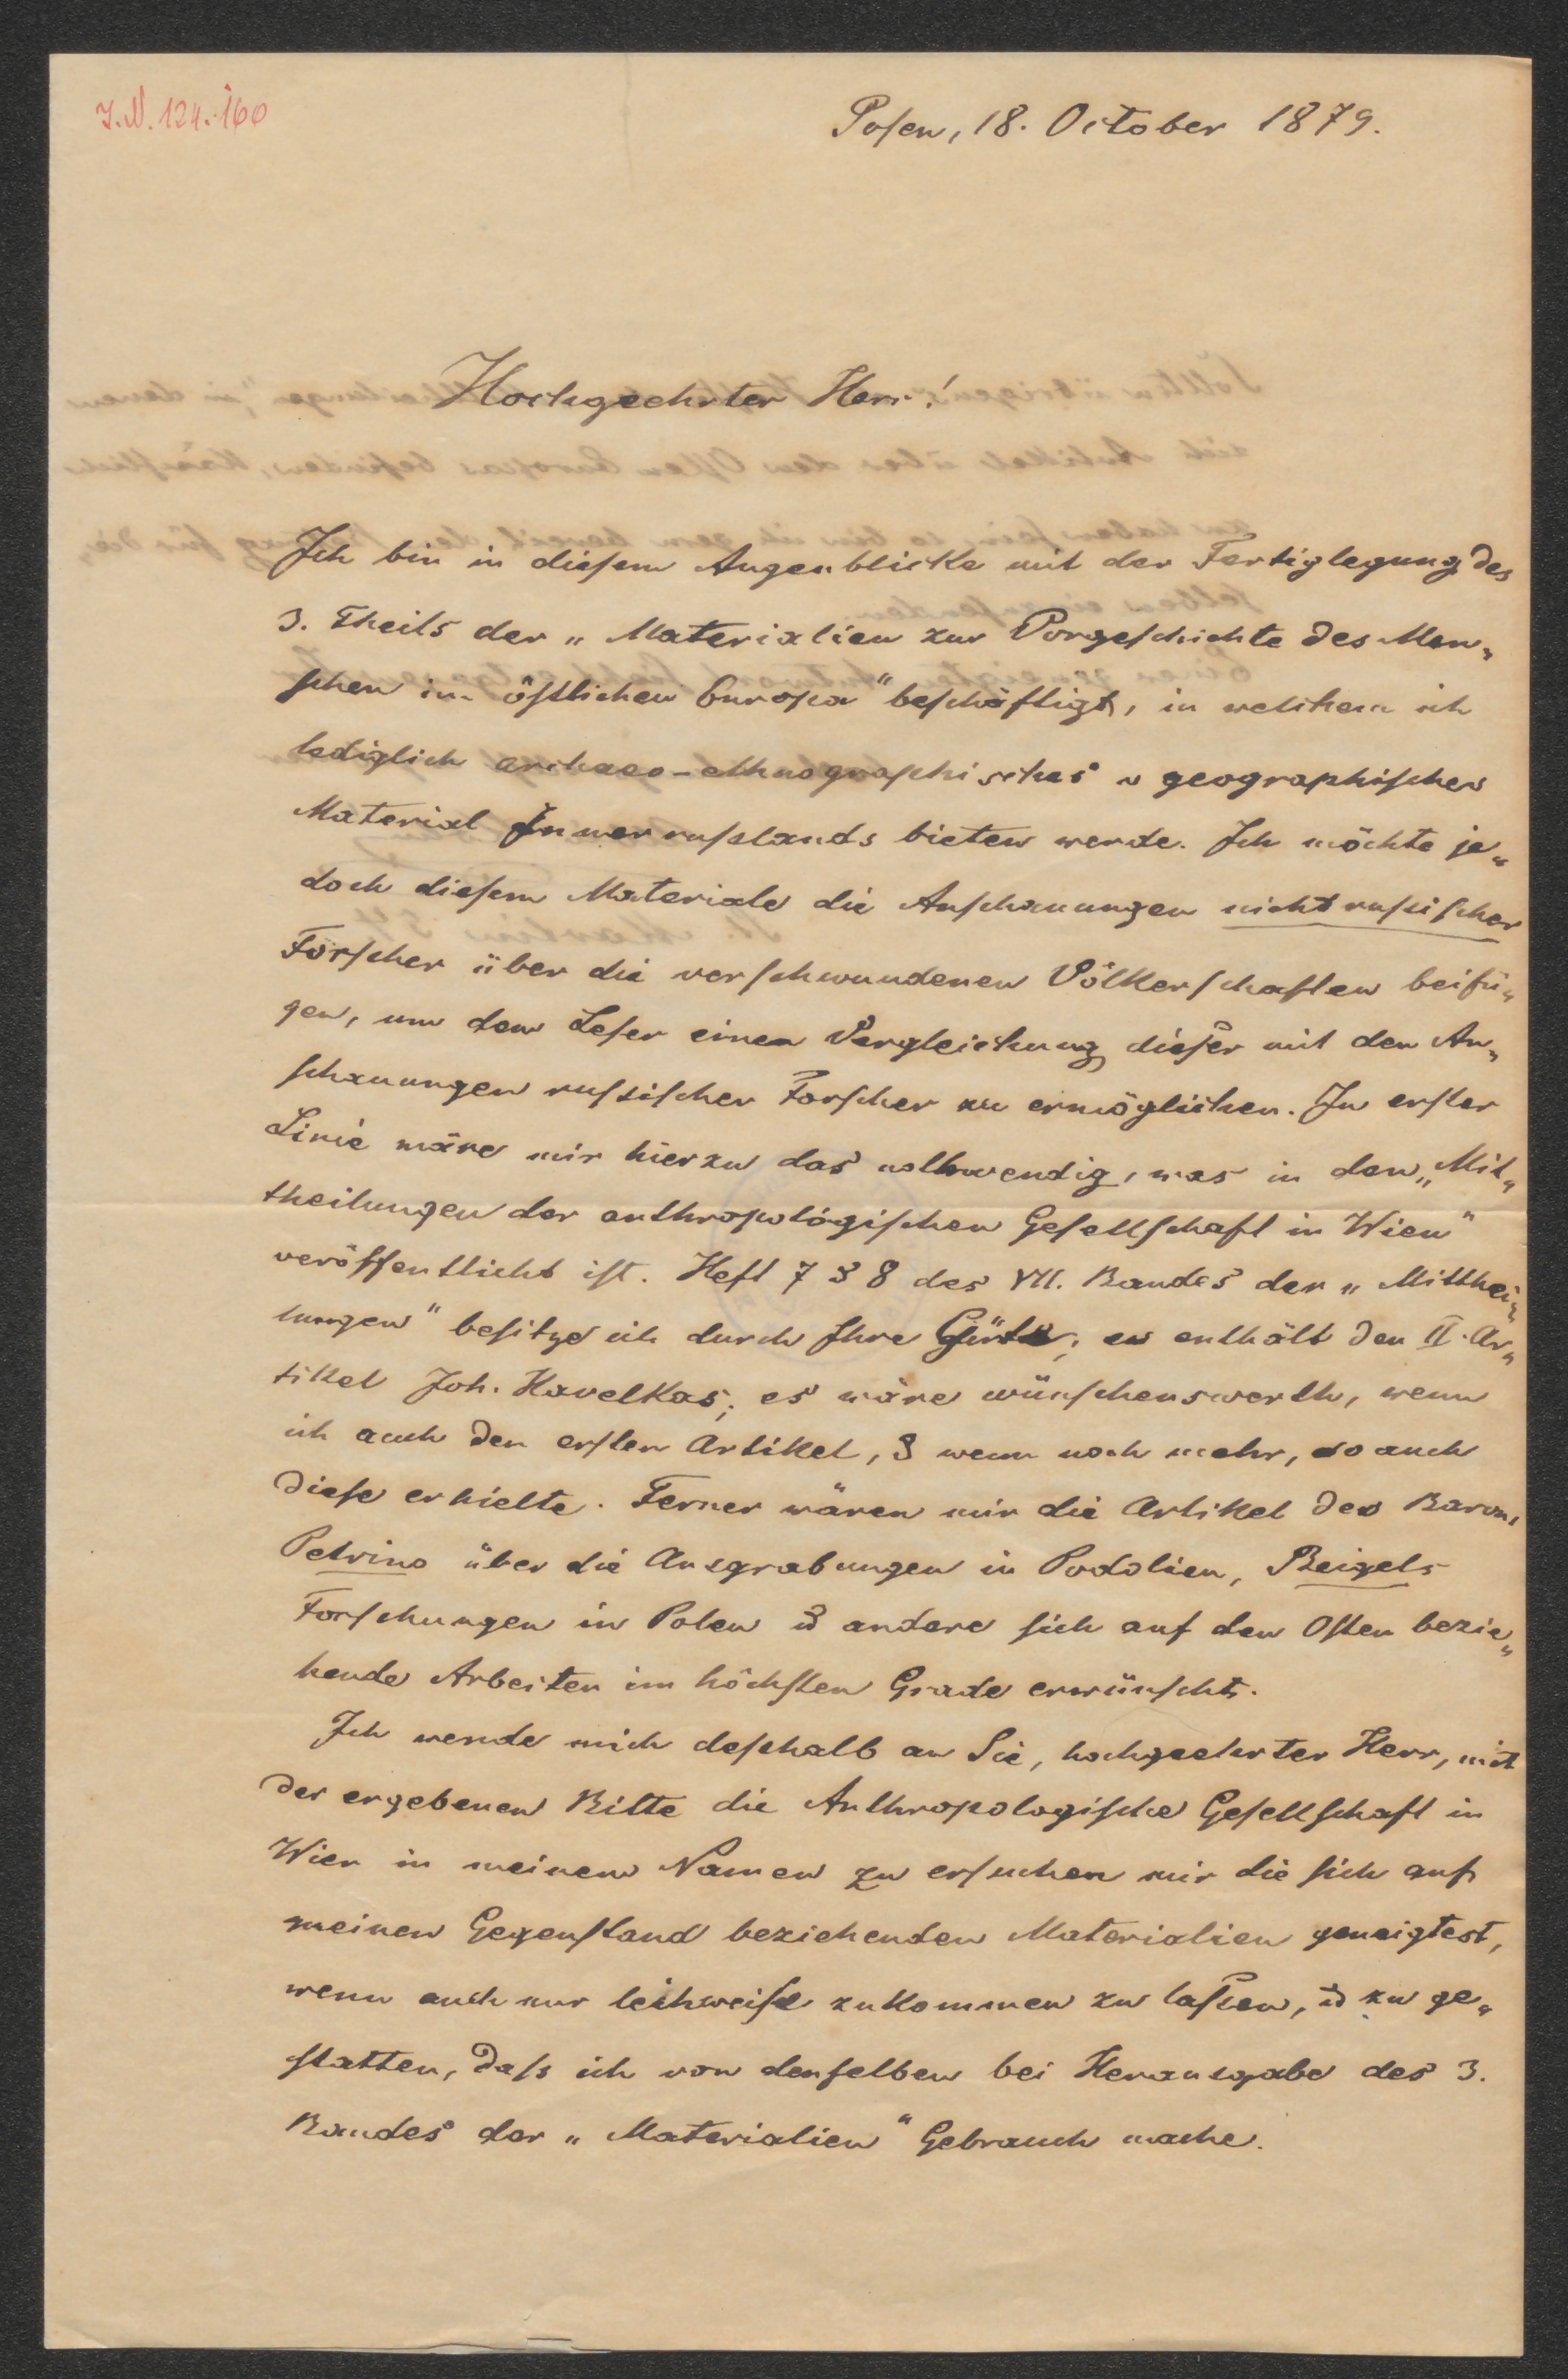 I.N. 124.160
Posen, 18. October 1879.
Hochgeehrter Herr!
Ich bin in diesem Augenblicke mit der Fertiglegung des
3. Theils der „Materialien zur Vorgeschichte des Men„
schen im östlichen Europa" beschäftigt, in welchem ich
lediglich archaeo-ethnographisches u geographisches
Material Innerrußlands bieten werde. Ich möchte je„
doch diesem Materiale die Anschauungen nichtrussischer
Forscher über die verschwundenen Völkerschaften beifü„
gen, um dem Leser einen Vergleichung dieser mit den An„
schauungen russischer Forscher zu ermöglichen. In erster
Linie wäre mir hierzu das nothwendig, was in den „Mit„
theilungen der anthropologischen Gesellschaft in Wien"
veröffentlicht ist. Heft 7 & 8 des VII. Bandes der „Mitthei„
lungen" besitze ich durch Ihre Güte; es enthält den II. Ar„
tikel Joh. Havelkas; es wäre wünschenswerth, wenn
ich auch den ersten Artikel, & wenn noch mehr, so auch
diese erhielte. Ferner wären mir die Artikel des Barons
Petrino über die Ausgrabungen in Podolien, Beigels
Forschungen in Polen u andere sich auf den Osten bezie„
hende Arbeiten im höchsten Grade erwünscht.
Ich wende mich deßhalb an Sie, hochgeehrter Herr, mit
der ergebenen Bitte die Anthropologische Gesellschaft in
Wien in meinem Namen zu ersuchen mir die sich auf
meinen Gegenstand beziehenden Materialien geneigtest,
wenn auch nur leihweise zukommen zu lassen, u zu ge„
statten, daß ich von denselben bei Herausgabe des 3.
Bandes der „Materialien" Gebrauch mache.